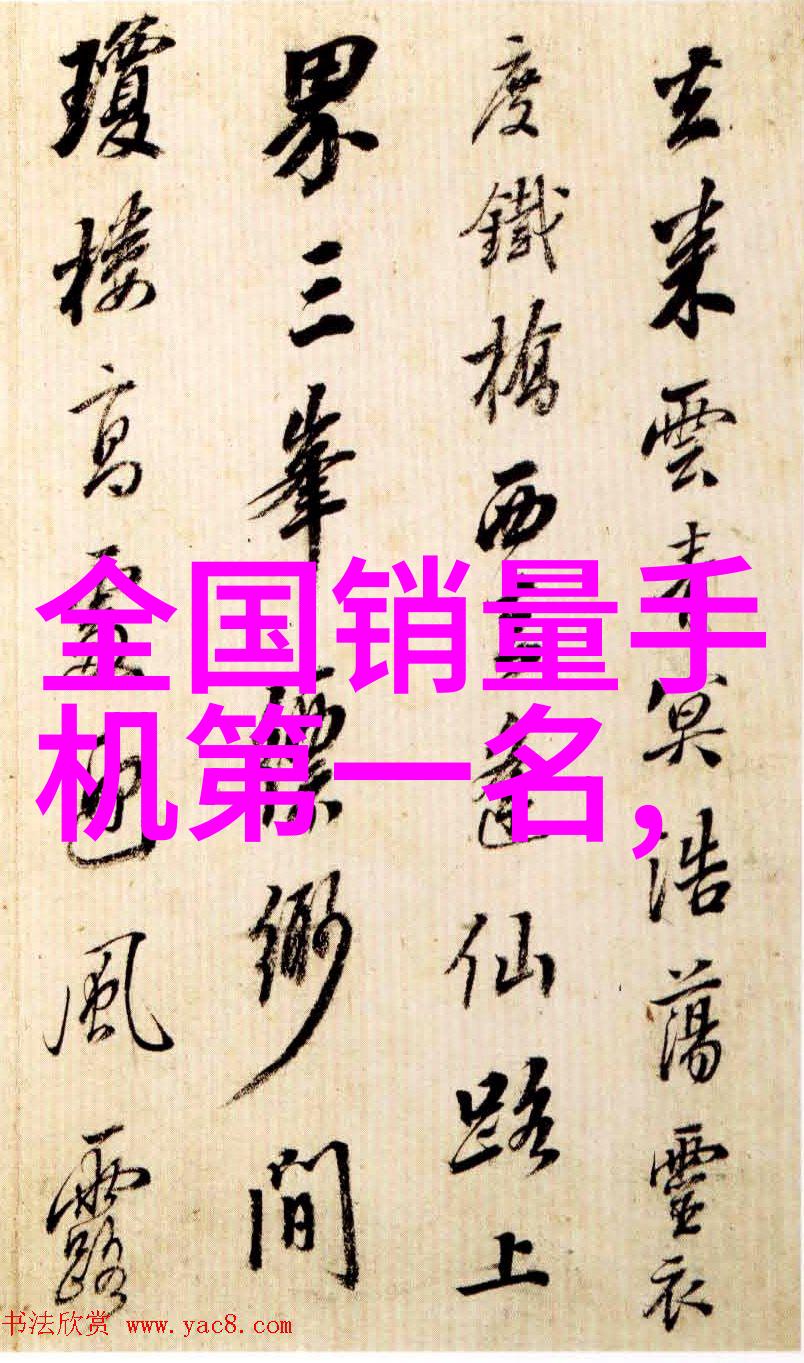 去來雲冥浩蕩靈衣
度鐵橋西逢仙路上
界三峯縹緲間
瓊樓高風露
全国销量手
机第一名,
书法欣赏 www.yac8.com